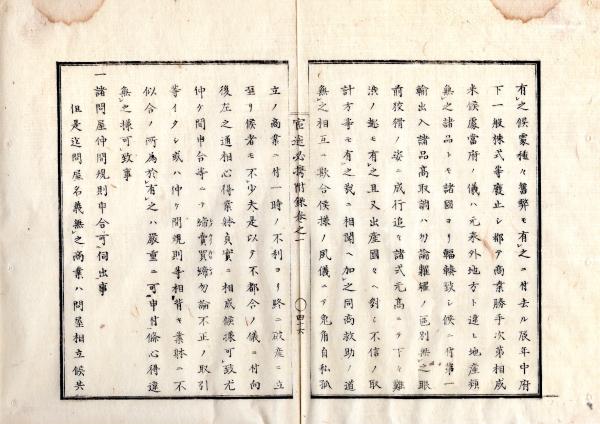 有之候處種々舊弊モ有之ニ付去ル辰年中府
下一般株式等廢止シ都テ商業勝手次第相成
来候處當府ノ儀ハ元来外地方ト違ヒ地産類
無之諸品トモ諸國ヨリ輻輳致シ候ニ付第一
輸出入諸品高取調ハ勿論糶糴ノ區別無之眼
前狡猾ノ姿ニ成行追々諸式元高ニテ下々難
渋ノ趣モ有之且又出産國々ヘ對シ不信ノ取
計方等モ有之哉ニ相聞ヘ加之同商救助ノ道
無之相互ニ欺合候様ノ風儀ニテ兎角自私孤
立ノ商業ニ付一時ノ不利ヨリ終ニ破産ニ立
至リ候者モ不少夫是以テ不都合ノ儀ニ付向
後左之通相心得業躰貞實ニ相成候様可致尤
仲ケ間申合等ニテ〆賣買締勿論不正ノ取引
等イタシ或ハ仲ケ間規則等相背キ業躰ニ不
似合ノ所為於有之ハ嚴重ニ可申付條心得違
無之様可致事
一諸問屋仲間規則申合可伺出事
但是迄問屋名義無之商業ハ問屋相立候共
附錄卷之一
四十六